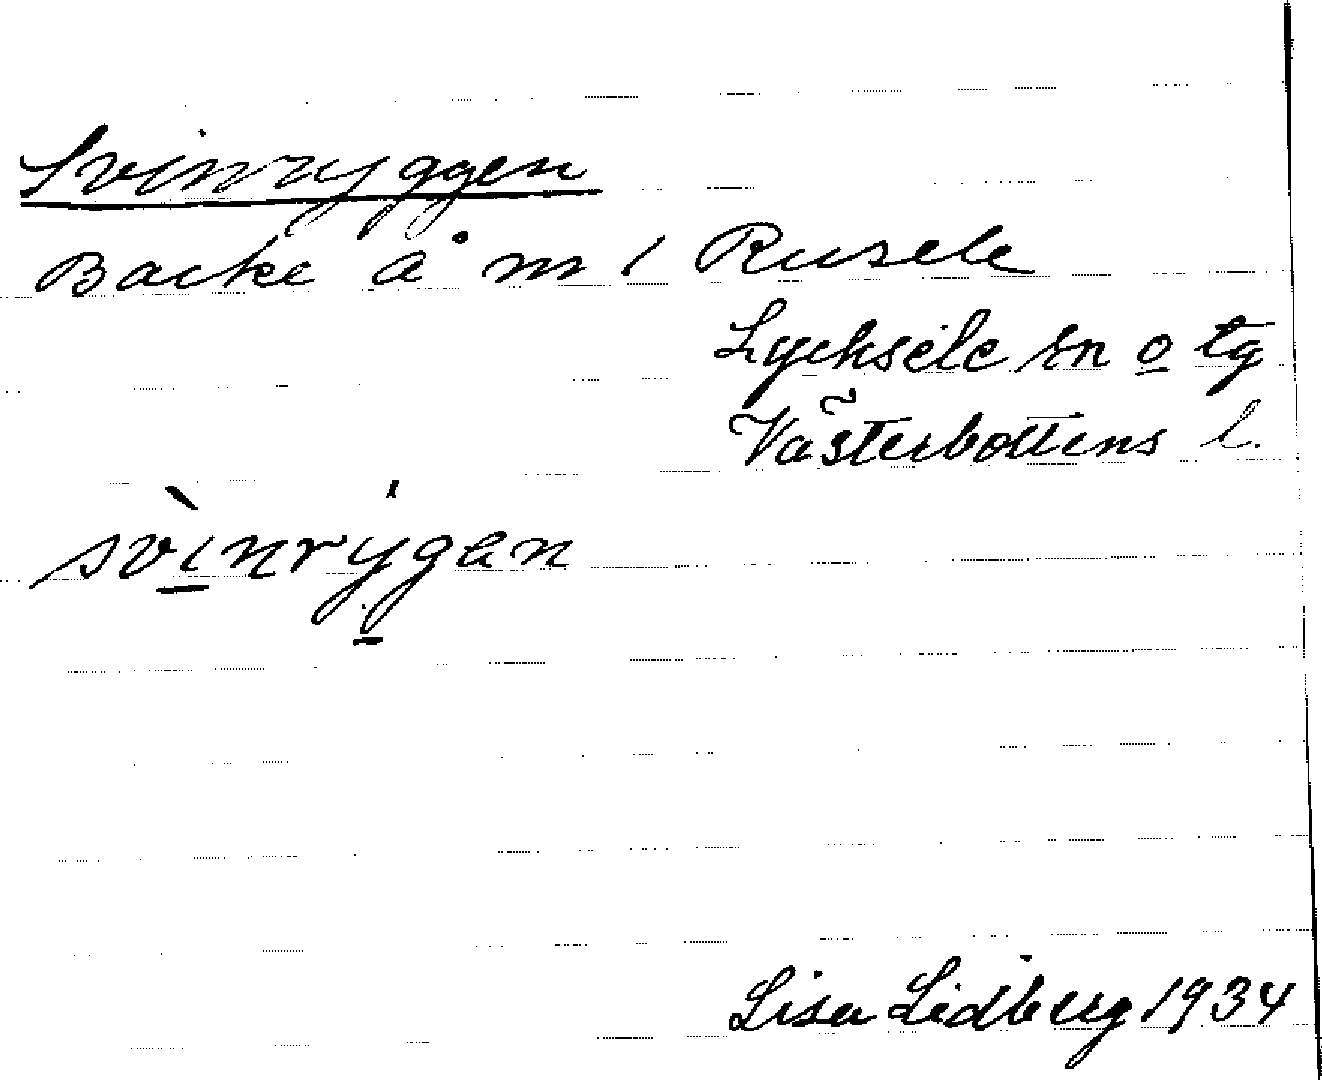 Svinryggen
Backe å m i Rusele
Lycksele sn o tg
Västerbottens l.
svìnrýgen
Lisa Lidberg 1934